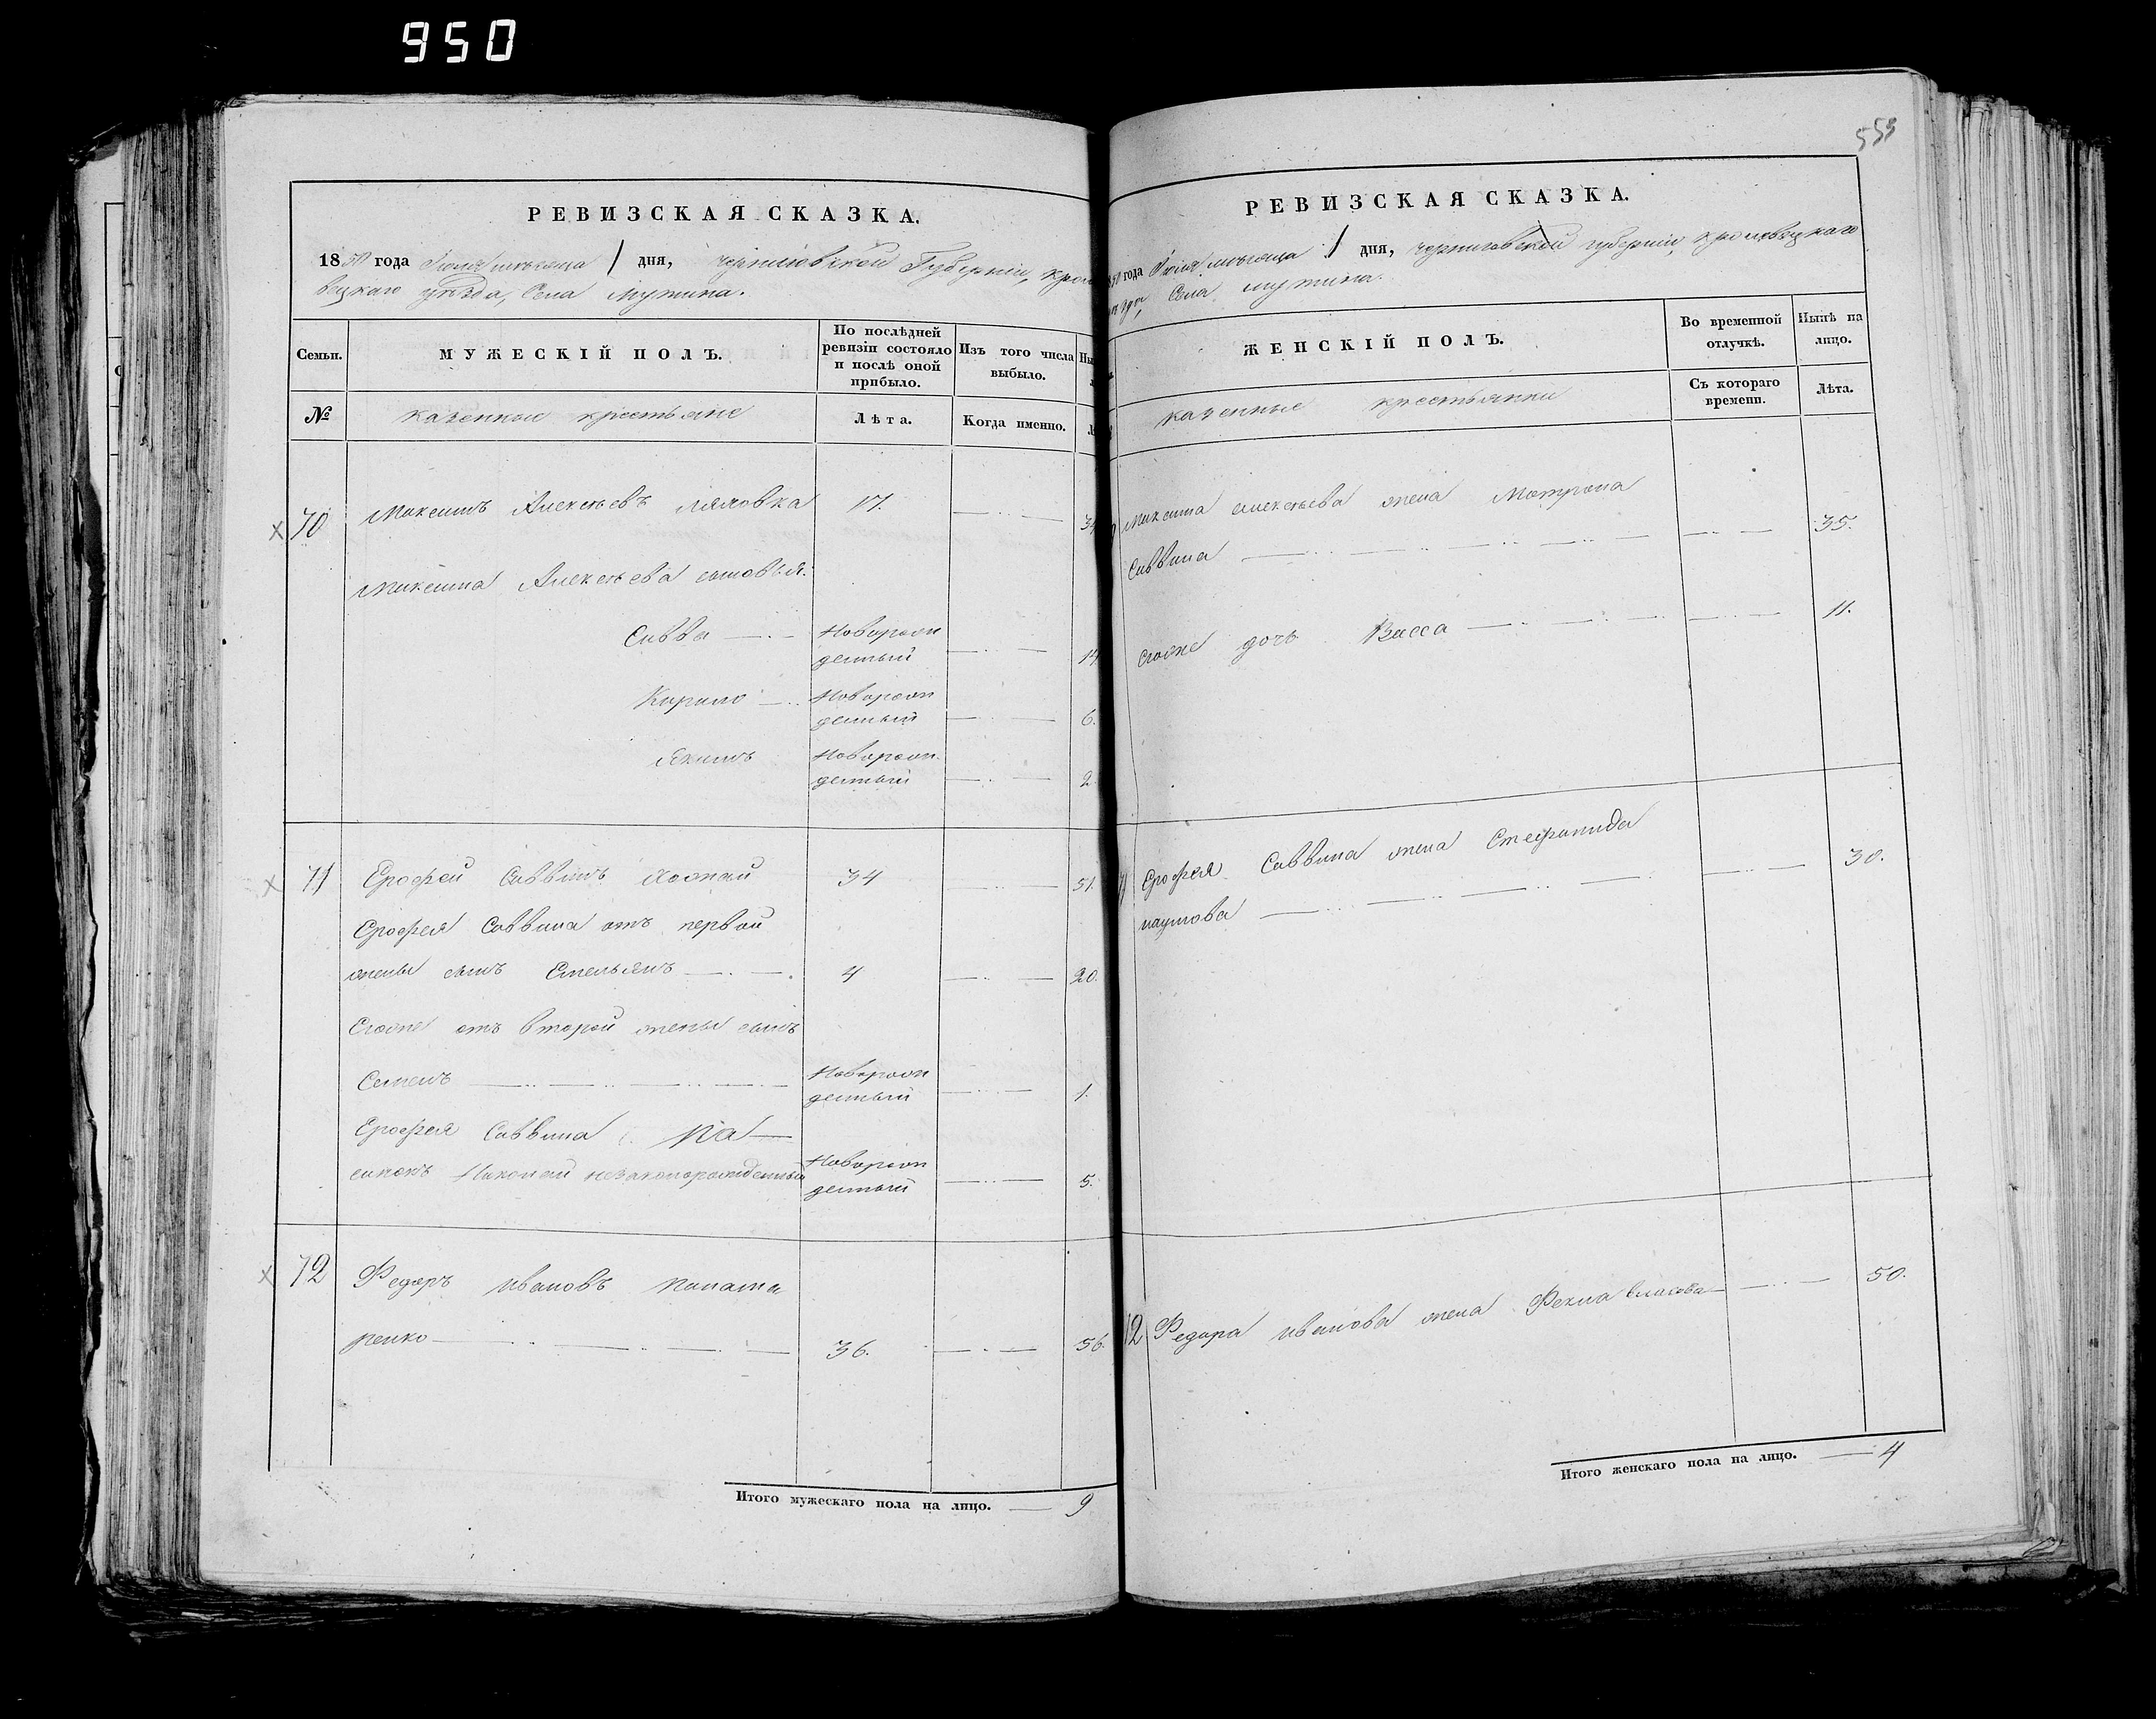 950
РЕВИЗСКАЯ СКАЗКА.
1850 года Іюля мѣсяца 1 дня, Черниговской Губерніи, Крол
вецкаго уѣзда, Села Мутина.
Семьи.
МУЖЕСКІЙ ПОЛЪ.
По послѣдней
ревизіи состояло
и послѣ оной
прибыло.
Изъ того числа
выбыло.
№
казенные крестьяне
Лѣта.
Когда именно.
70 Максимъ Алексѣевъ 17. 34
Максима Алексѣева сыновья:
Савва Новорож
денный 14
Кирило Новорож
денный 6.
Якимъ Новорож
денный 2
71 Ерофей Саввинъ 34 51.
Ерофея Саввина отъ первой
жены сынъ Емельянъ 4 20.
Егоже отъ второй жены сынъ
Семенъ Новорож
денный 1.
Ерофея Саввина Па
сынокъ Николай незаконорожденный Новорож
денный 5.
72 Федоръ Ивановъ
ренко 36. 56.
Итого мужескаго пола на лицо. 9
555
РЕВИЗСКАЯ СКАЗКА.
50 года Іюля мѣсяца 1 дня, Черниговской губерніи, Кролевецкаго
Села Мутина.
ЖЕНСКІЙ ПОЛЪ.
Во временной
отлучкѣ.
Нынѣ на
лицо.
казенные крестьянки
Съ котораго
времени.
Лѣта.
Максима Алексѣева жена Матрона
Саввина 35.
Егоже дочь Васса 11.
Ерофея Саввина жена Стефанида
Наумова 30.
72 Федора Иванова жена Фекла Власова 50.
Итого женскаго пола на лицо. 4